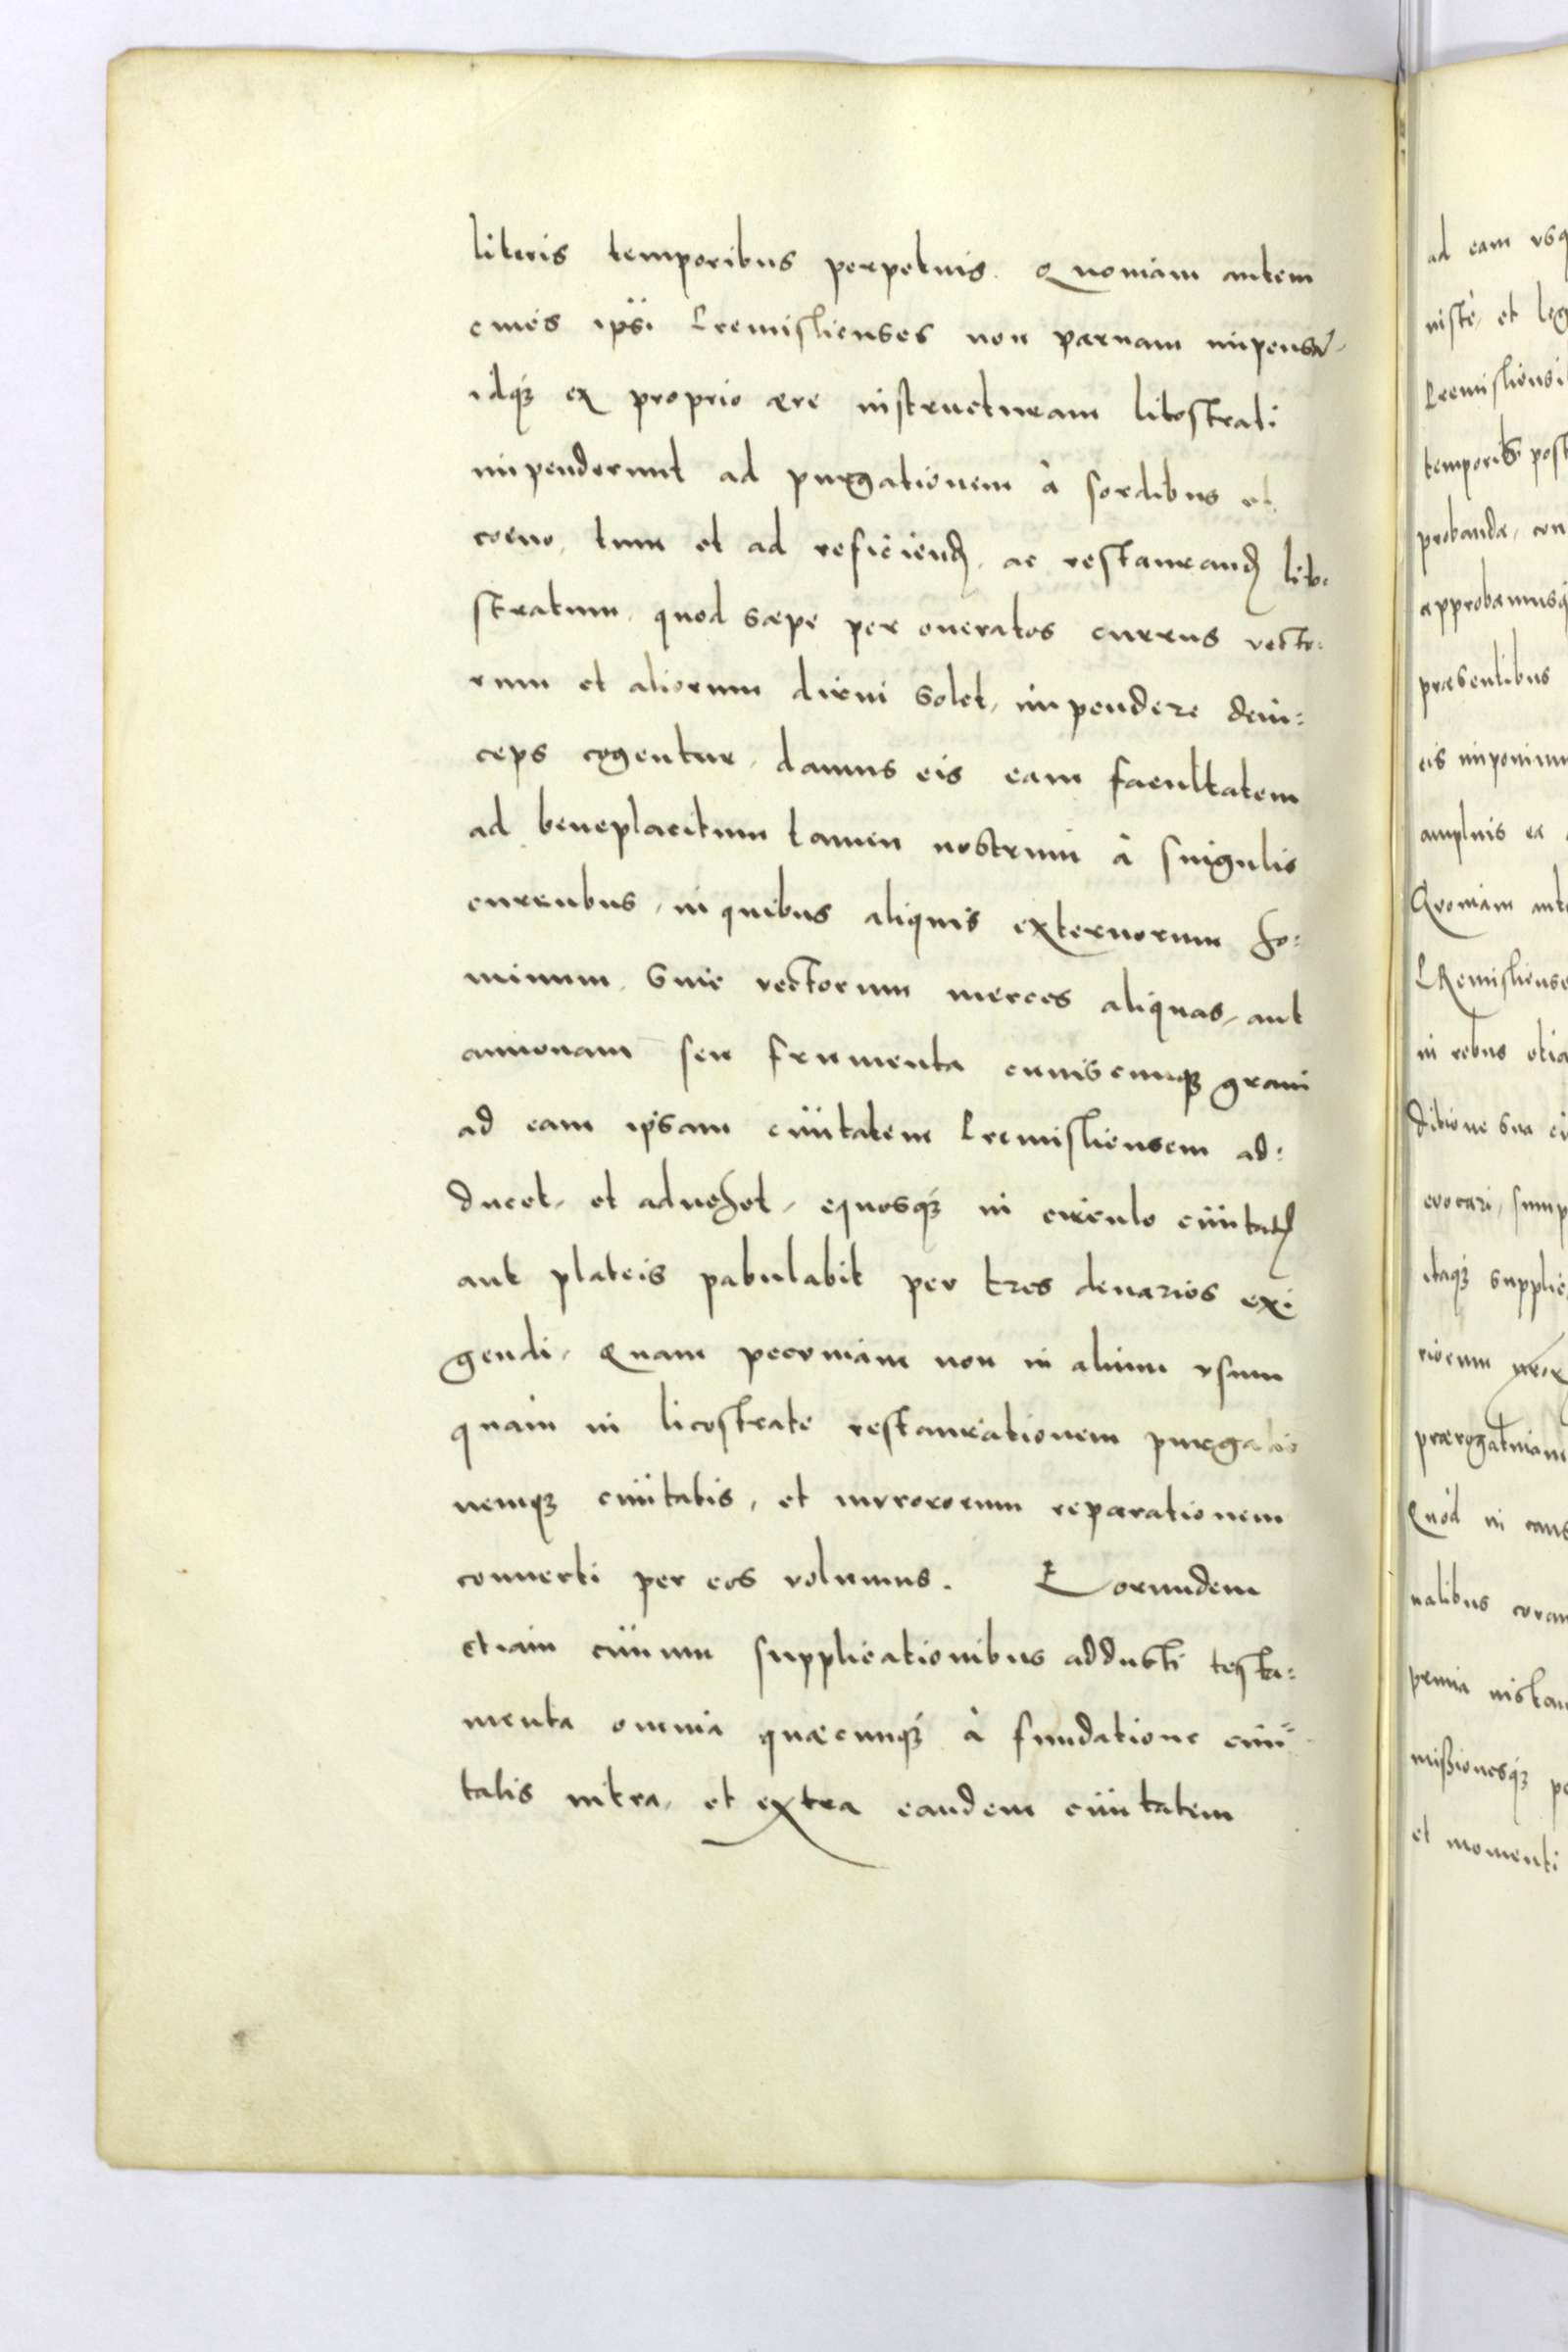 literis temporibus perpetuis. Quoniam autem
ciues ipsi Premislienses non paruam impensā
idq́ꝫ ex proprio aere instructuram litostrati
impenderunt ad purgationem à sordibus et
coeno, tum et ad reficiend, ac restaurand lito-
stratum, quod saepe per oneratos currus vecto:
rum et aliorum dirui solet, impendere dein:
ceps cogentur, damus eis eam facultatem
ad beneplacitum tamen nostrum à singulis
curribus, in quibus aliquis externorum ho:
minum, siue vectorum merces aliquas, aut
annonam seu frumenta cuiuscunqꝫ grani
ad eam ipsam ciuitatem Premisliensem ad:
ducet, et aduehet, equosq́ꝫ in circulo ciuitat
aut plateis pabulabit per tres denarios exi
gendi, Quam pecuniam non in alium vsum
quam in licostrate restaurationem purgatio
nemqꝫ ciuitatis, et mvrororum reparationem
conuerti per eos volumus. Eorundem
etiam ciuium supplicationibus adducti testa:
menta omnia quaecunq́ꝫ à fundatione ciui=
tatis intra, et extra eandem ciuitatem
ad eam vsq
niste, et leg
Premisliensi
temporib post
probanda, con
approbamusq
praesentibus
eis imponimu
amplius ea
Quoniam aute
PRemisliense
in rebus etia
ditione sua ci
evocari, sump
itaq́ꝫ supplic
riorum
praerogatiuam
Quòd in caus
nalibus coram
prima instan
mißionesq́ꝫ pe
et momenti